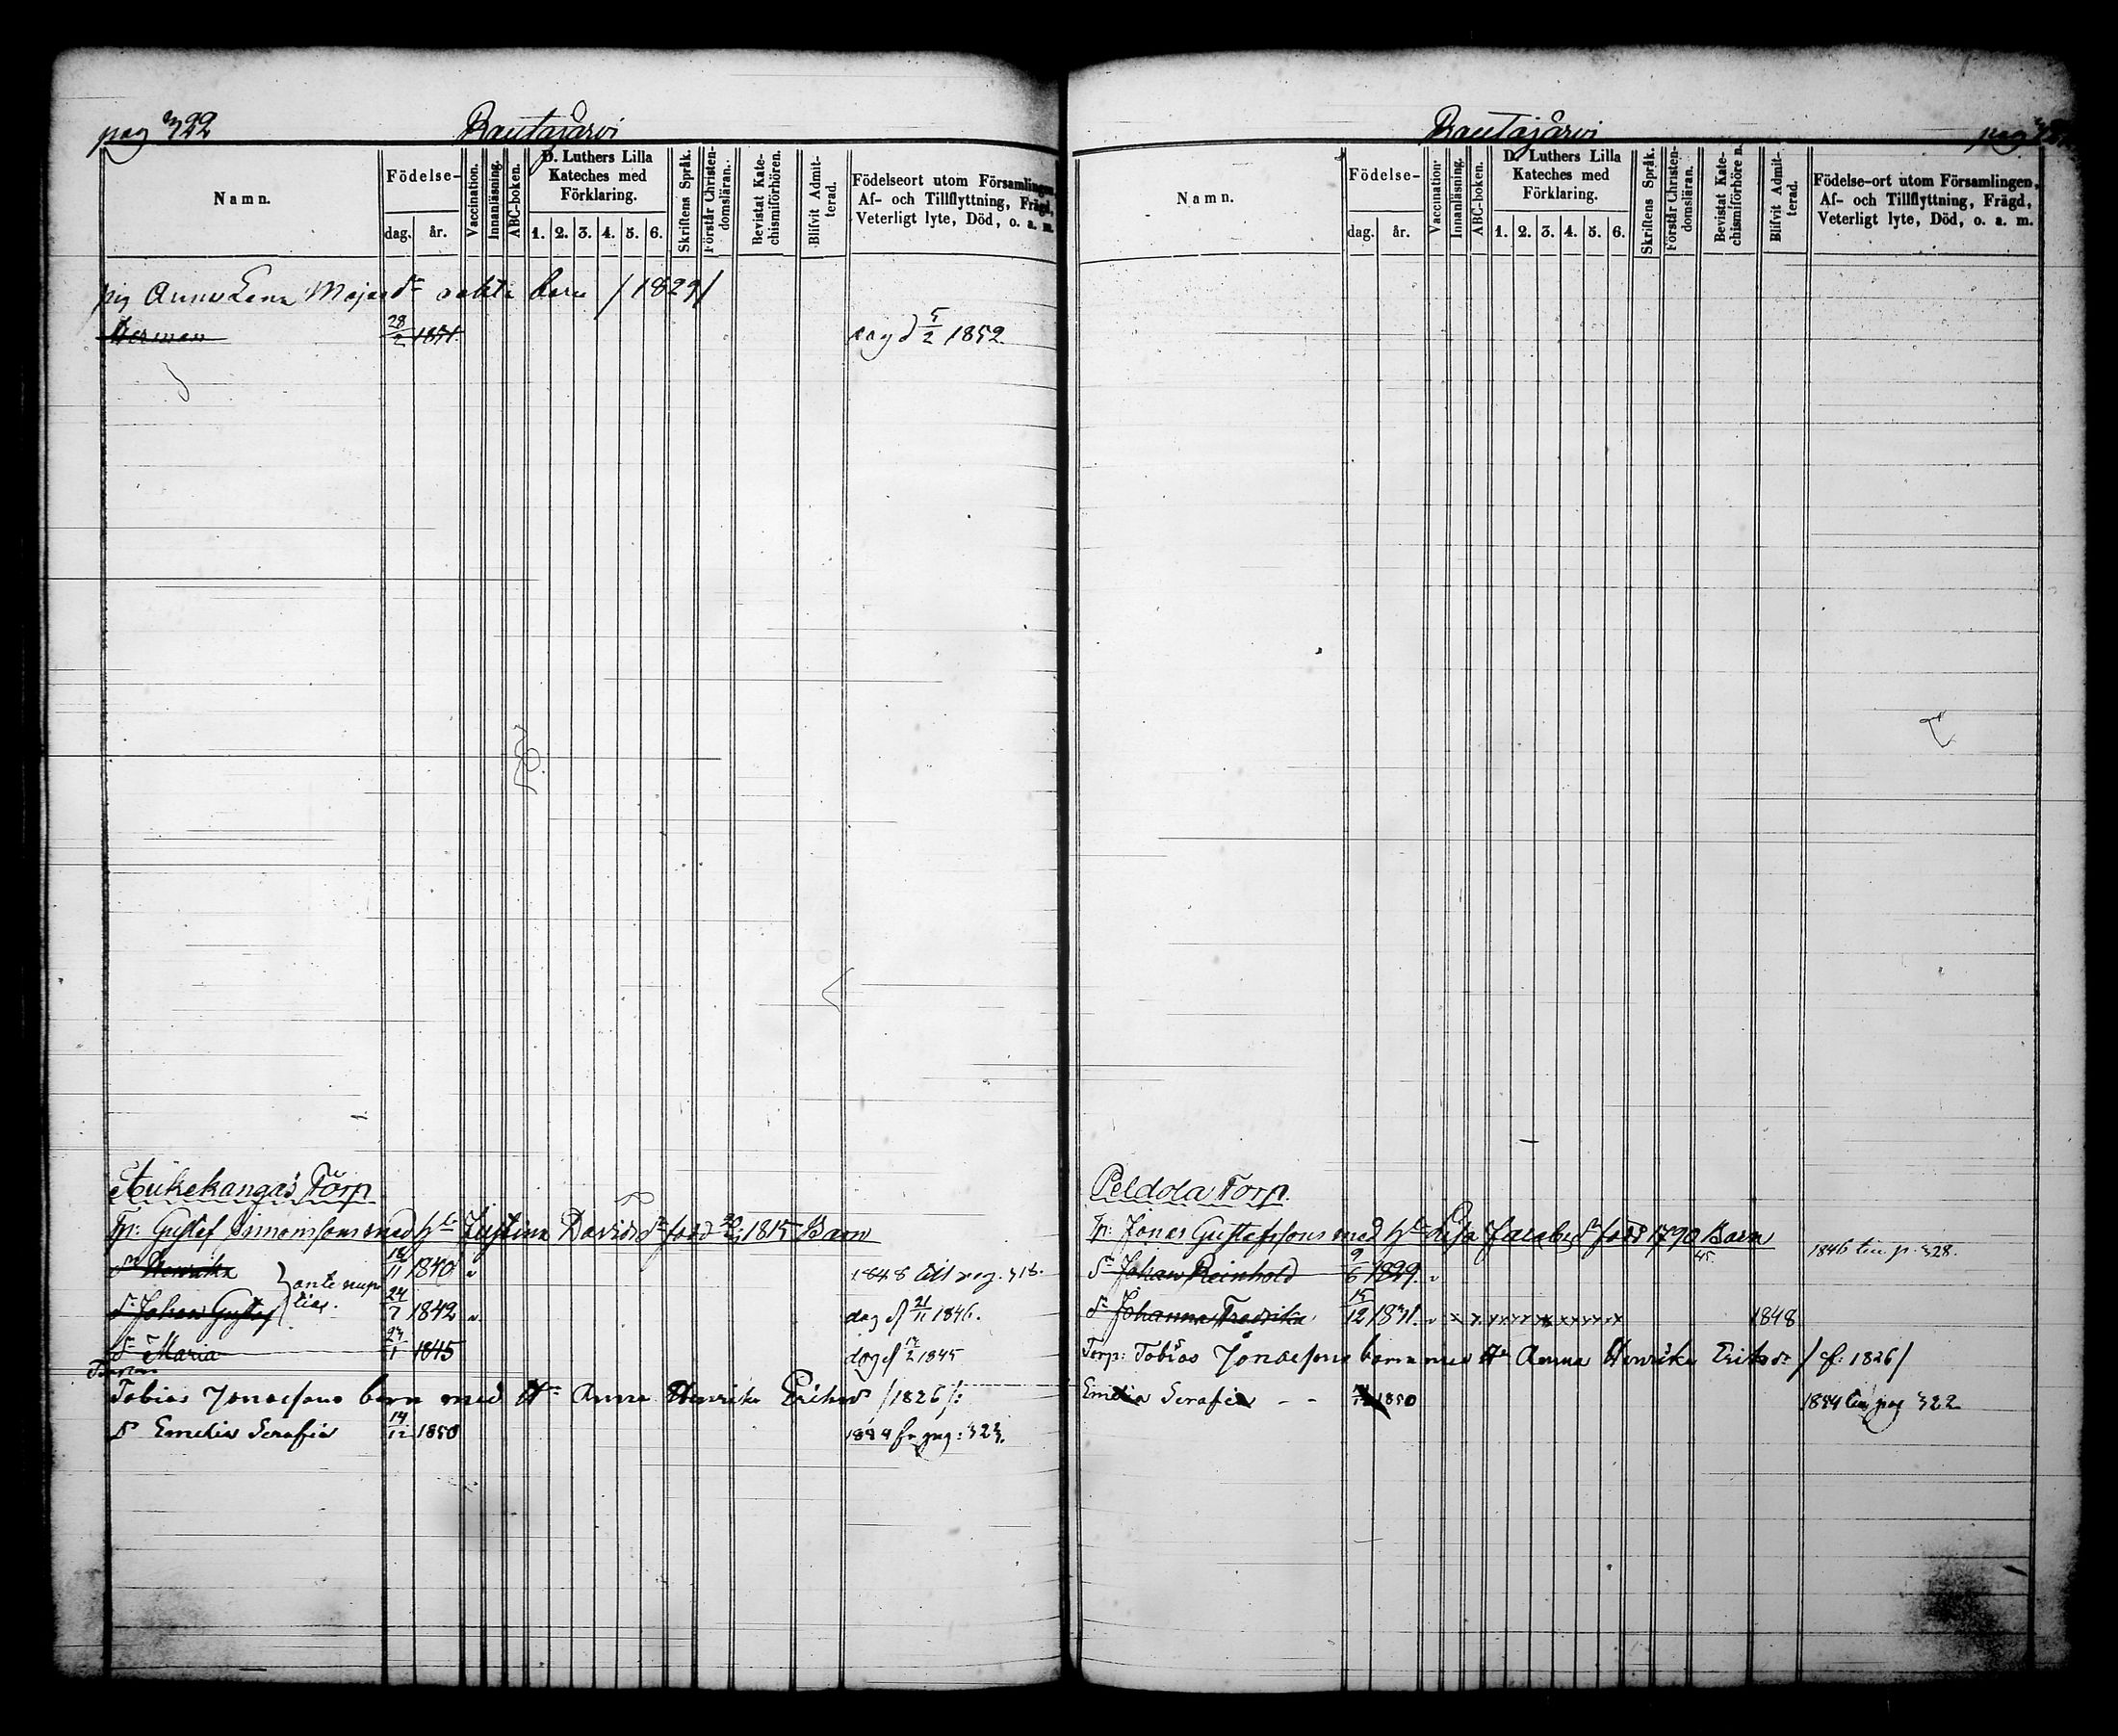 pag 322
Rautajärvi
Namn.
Födelse-
dag.
år.
Vaccination.
Innanläsning.
ABC-boken.
D. Luthers Lilla
Kateches med
Förklaring.
1. 2. 3. 4. 5. 6.
Skriftens Språk.
Förstår Christen-
domsläran.
Bevistat Kate-
chismiförhören.
Blifvit Admit-
terad.
Födelseort utom Församlingen,
Af- och Tillflyttning, Frägd,
Veterligt lyte, Död, o. a. m.
pig Anna Lena Majas dr oäkta barn /1829/
Herman 28/2 1851. 5/2 1852.
Torp
Tp: Gustef Simonssons med h Justina Davidsdr född 1815 Barn
Henrika 18/11 1840 1848 till pag. 318.
ante nup
tias.
Johan Gustaf 24/7 1842 21/11 1846.
Maria 1845 1845
Tobias Jonassons barn med Hu Anna Henrika Ericsdr /1826/:
dr Emelia Serafia 14/12 1850 fr pag: 323.
Rautajärvi
Namn.
Födelse-
dag.
år.
Vaccination.
Innanläsning.
ABC-boken.
D. Luthers Lilla
Kateches med
Förklaring.
1. 2. 3. 4. 5. 6.
Skriftens Språk.
Förstår Christen-
domsläran.
Bevistat Kate-
chismiförhören.
Blifvit Admit-
terad.
Födelse-ort utom Församlingen,
Af- och Tillflyttning, Frägd,
Veterligt lyte, Död, o. a. m.
Peldola Torp.
Tp: Jonas Gustafssons med h Lisa Jacobsdr född 1790 Barn
Johan Reinhold 9/6 45. 1846 till p. 328.
dr Johanna Fredrika 15/12 1831. 1848
Torp: Tobias Jonassons barn med Hu Anna Henrika Ericsdr /f: 1826/
Emelia Serafia - - 1850 1854 till pag 322